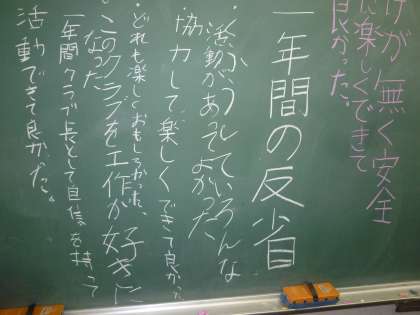 けが無く安全
に楽しくできて
良かった。
一年間の反省
・くふうしていろんな
活動があってよかった
・協力して楽しくできて良かった
・どれも楽しくおもしろかった、
このクラブを工作が好きに
なった
一年間クラブ長として自信を持って
活動できて良かった。